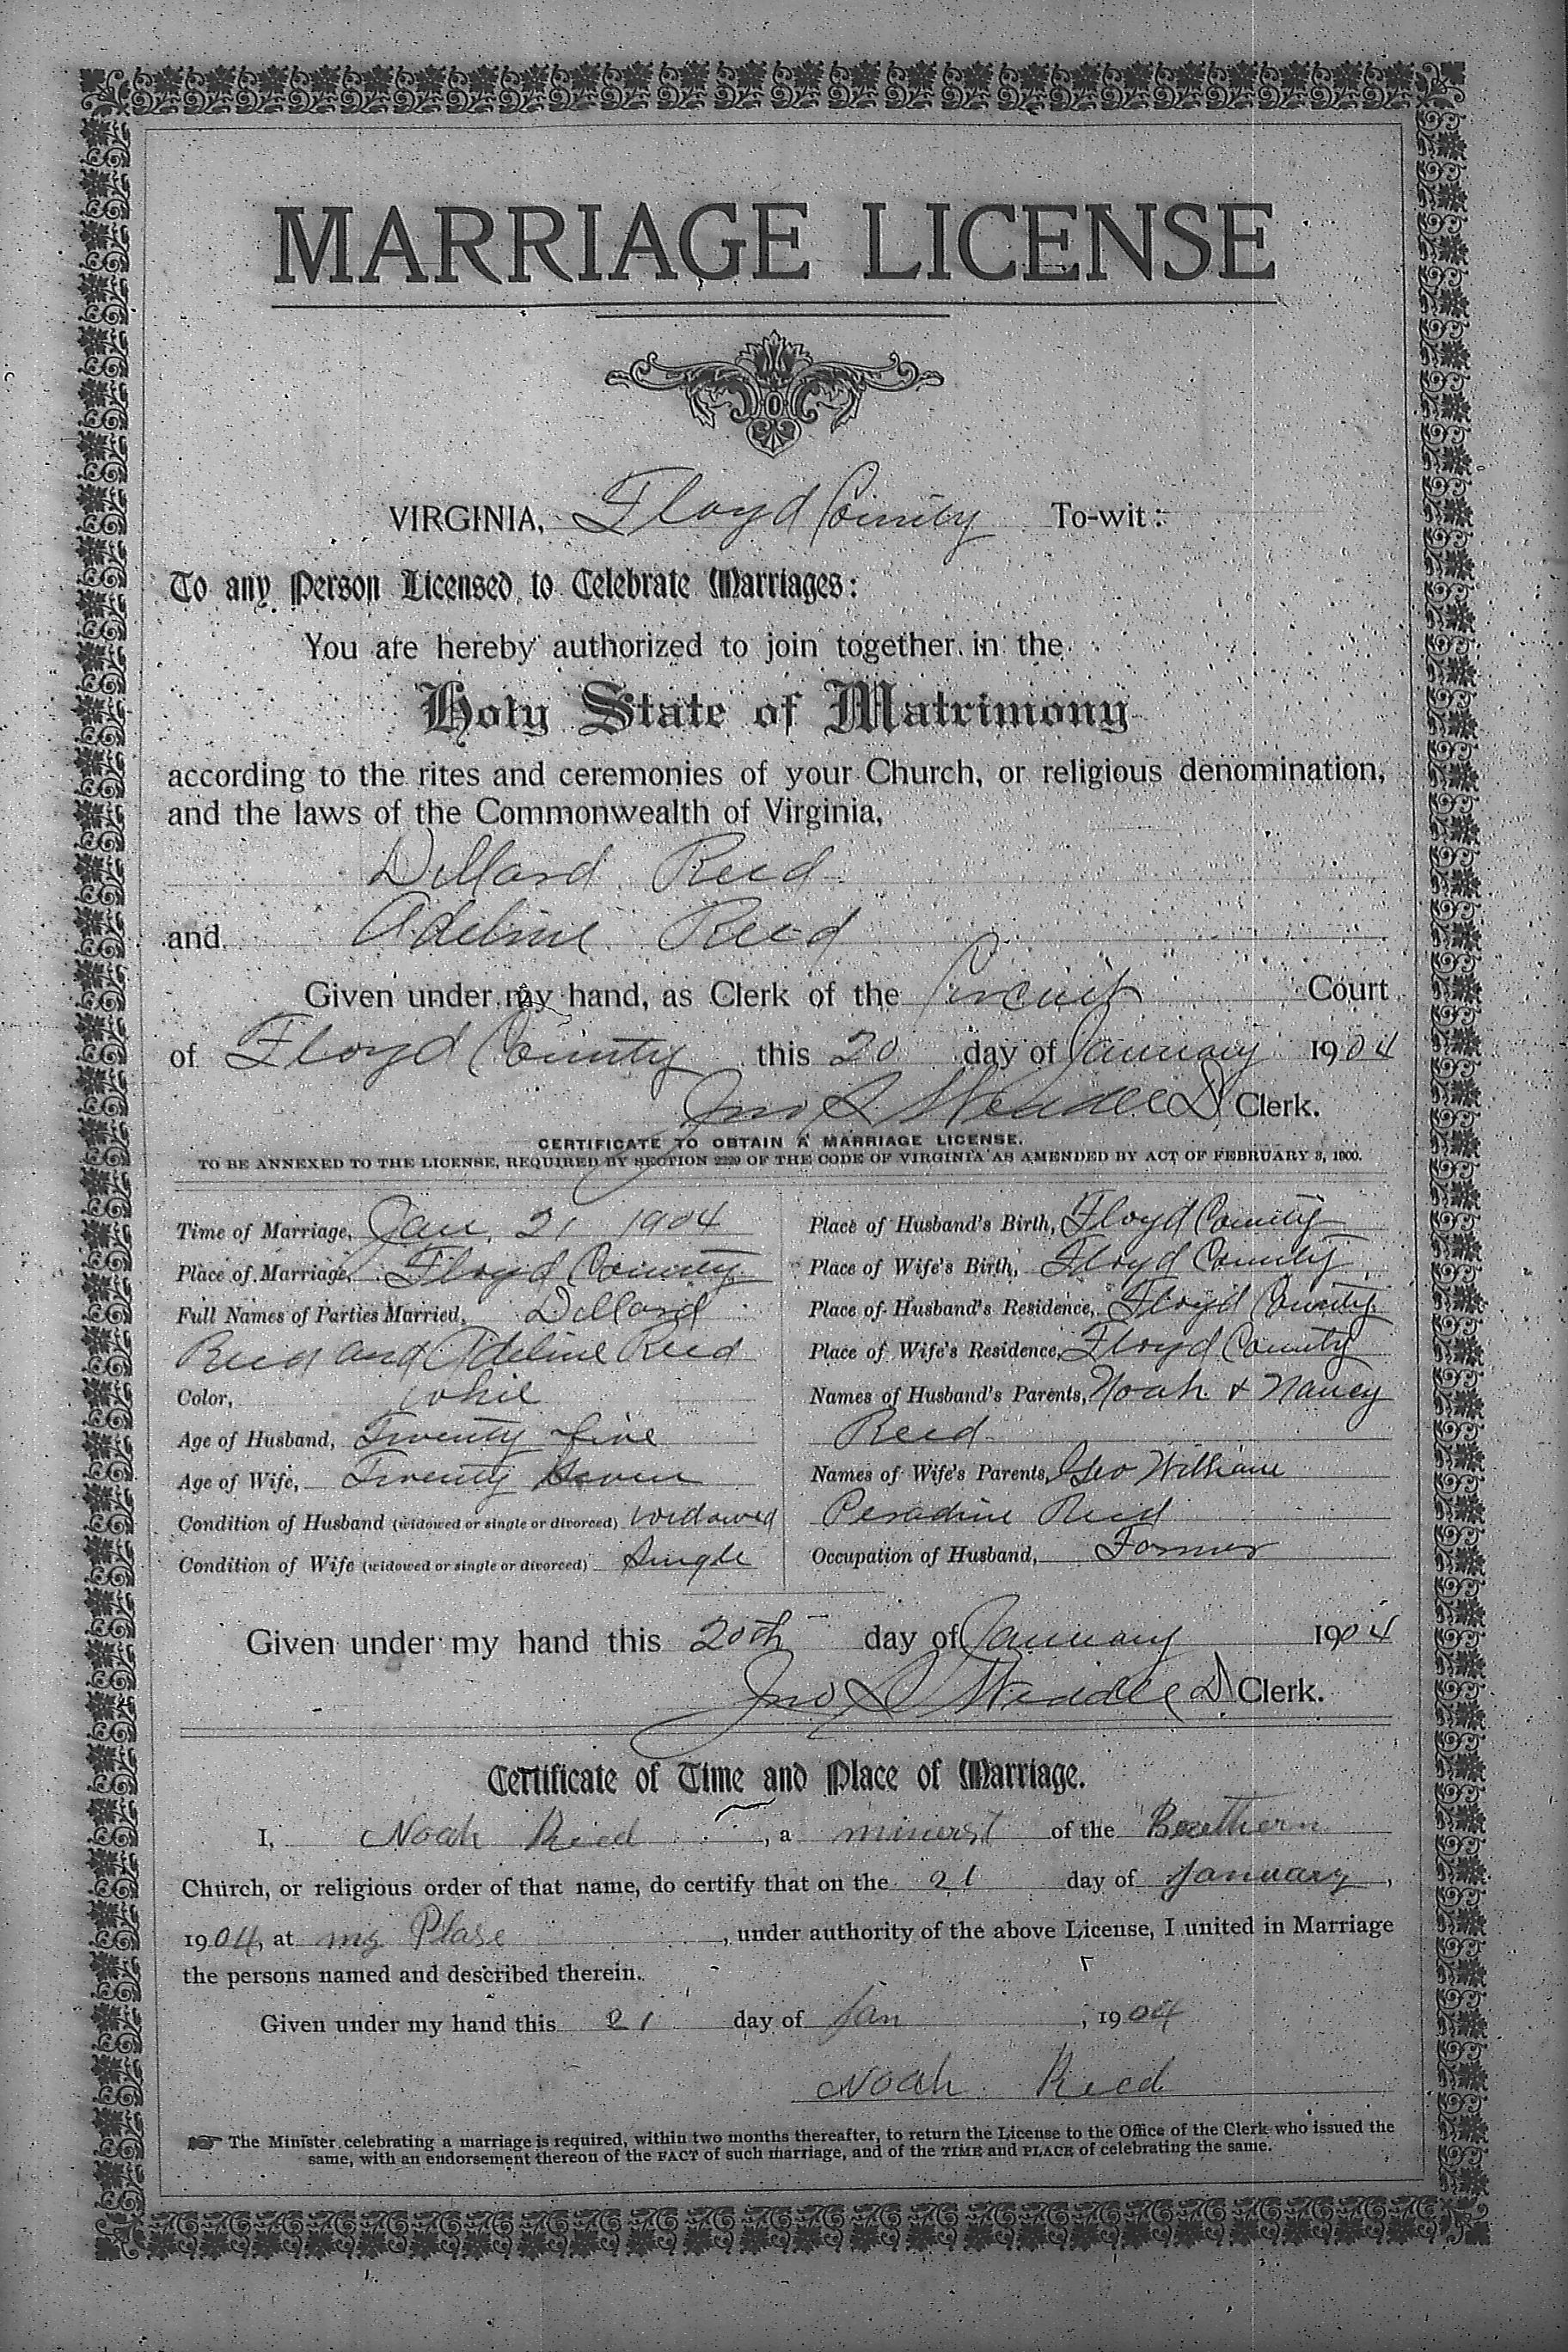 MARRIAGE LICENSE
VIRGINIA, Floyd County To-wit:
To any Person Licensed to Celebrate Marriages:
You are hereby authorized to join together in the
Holy State of Matrimony
according to the rites and ceremonies of your Church, or religious denomination,
and the laws of the Commonwealth of Virginia,
Dillard Reed
and Adeline Reed
Given under my hand, as Clerk of the Circuit Court
of Floyd County this 20 day of January 1904
Jno S. Clerk.
CERTIFICATE TO OBTAIN A MARRIAGE LICENSE.
TO BE ANNEXED TO THE LICENSE, REQUIRED BY SECTION 2229 OF THE CODE OF VIRGINIA AS AMENDED BY ACT OF FEBRUARY 3, 1900.
Time of Marriage, Jan. 21 1904
Place of Marriage, Floyd County
Full Names of Parties Married, Dillard
Reed and Adeline Reed
Color, white
Age of Husband, Twenty five
Age of Wife, Twenty Seven
Condition of Husband (widowed or single or divorced) widowed
Condition of Wife (widowed or single or divorced) Single
Place of Husband's Birth, Floyd County
Place of Wife's Birth, Floyd County
Place of Husband's Residence, Floyd County
Place of Wife's Residence, Floyd County
Names of Husband's Parents, Noah & Nancy
Reed
Names of Wife's Parents, Geo
Reed
Occupation of Husband, Farmer
Given under my hand this 20th day of January 1904
Jno S Clerk.
Certificate of Time and Place of Marriage.
I, Noah Reed, a minerst of the
Church, or religious order of that name, do certify that on the 21 day of January,
1904, at my Plase, under authority of the above License, I united in Marriage
the persons named and described therein.
Given under my hand this 21 day of Jan, 1904
Noah Reed
☞ The Minister celebrating a marriage is required, within two months thereafter, to return the License to the Office of the Clerk who issued the
same, with an endorsement thereon of the FACT of such marriage, and of the TIME and PLACE of celebrating the same.